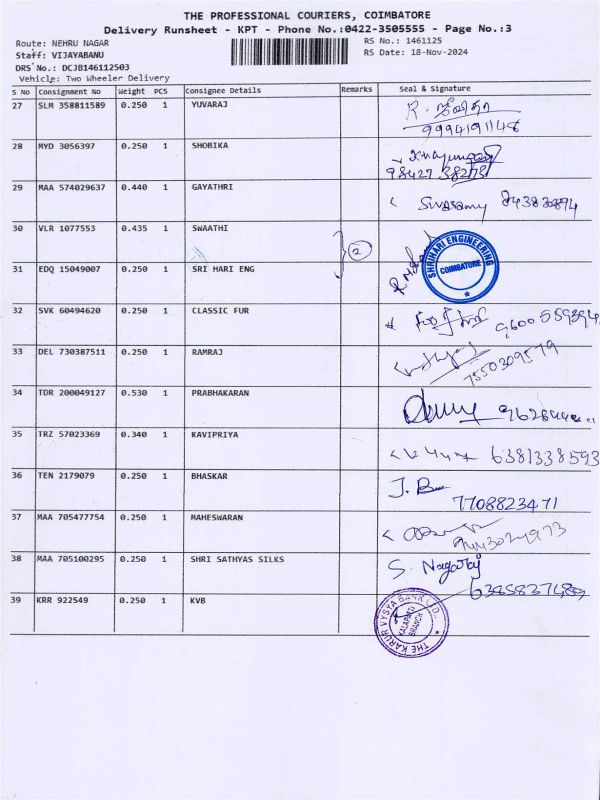 THE PROFESSIONAL COURIERS, COIMBATORE
Delivery Runsheet - KPT - Phone No.:0422-3505555 - Page No.:3
Route: NEHRU NAGAR RS No.: 1461125
Staff: VIJAYABANU RS Date: 18-Nov-2024
DRS No.: DCJB146112503
Vehicle: Two Wheeler Delivery
S No Consignment No Weight PCS Consignee Details Remarks Seal & Signature
27 SLM 358811589 0.250 1 YUVARAJ
9994191148
28 MYD 3056397 0.250 1 SHOBIKA
98427 38278
29 MAA 574029637 0.440 1 GAYATHRI
30 VLR 1077553 0.435 1 SWAATHI
2
SHRIHARI ENGINEERING
COIMBATORE
31 EDQ 15049007 0.250 1 SRI HARI ENG
32 SVK 60494620 0.250 1 CLASSIC FUR
33 DEL 730387511 0.250 1 RAMRAJ
7550309579
34 TDR 200049127 0.530 1 PRABHAKARAN
35 TRZ 57023369 0.340 1 KAVIPRIYA 6381338593
36 TEN 2179079 0.250 1 BHASKAR J.B
7708823471
37 MAA 705477754 0.250 1 MAHESWARAN
38 MAA 705100295 0.250 1 SHRI SATHYAS SILKS S. Nagaraj
39 KRR 922549 0.250 1 KVB
THE KARUR VYSYA BANK LTD.
KALAPATTI
BRANCH